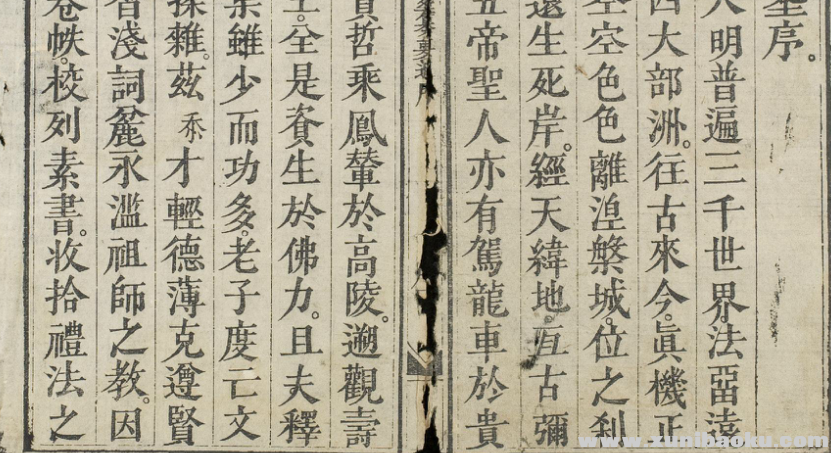 序。
大明普遍三千世界法畱遠
四大部洲。往古來今。眞機正
空空色色離湼槃城。位之刹
還生死岸。經天緯地。亙古彌
五帝聖人亦有駕龍車於貴
賢哲乘鳳輦於高陵。遡觀壽
全是資生於佛力。且夫釋
雖少而功多。老子度亡文
採雜。茲忝才輕德薄克遵賢
淺詞麄永滥祖師之教。因
卷帙。校列素書。收拾禮法之
www.xunibaoku.com